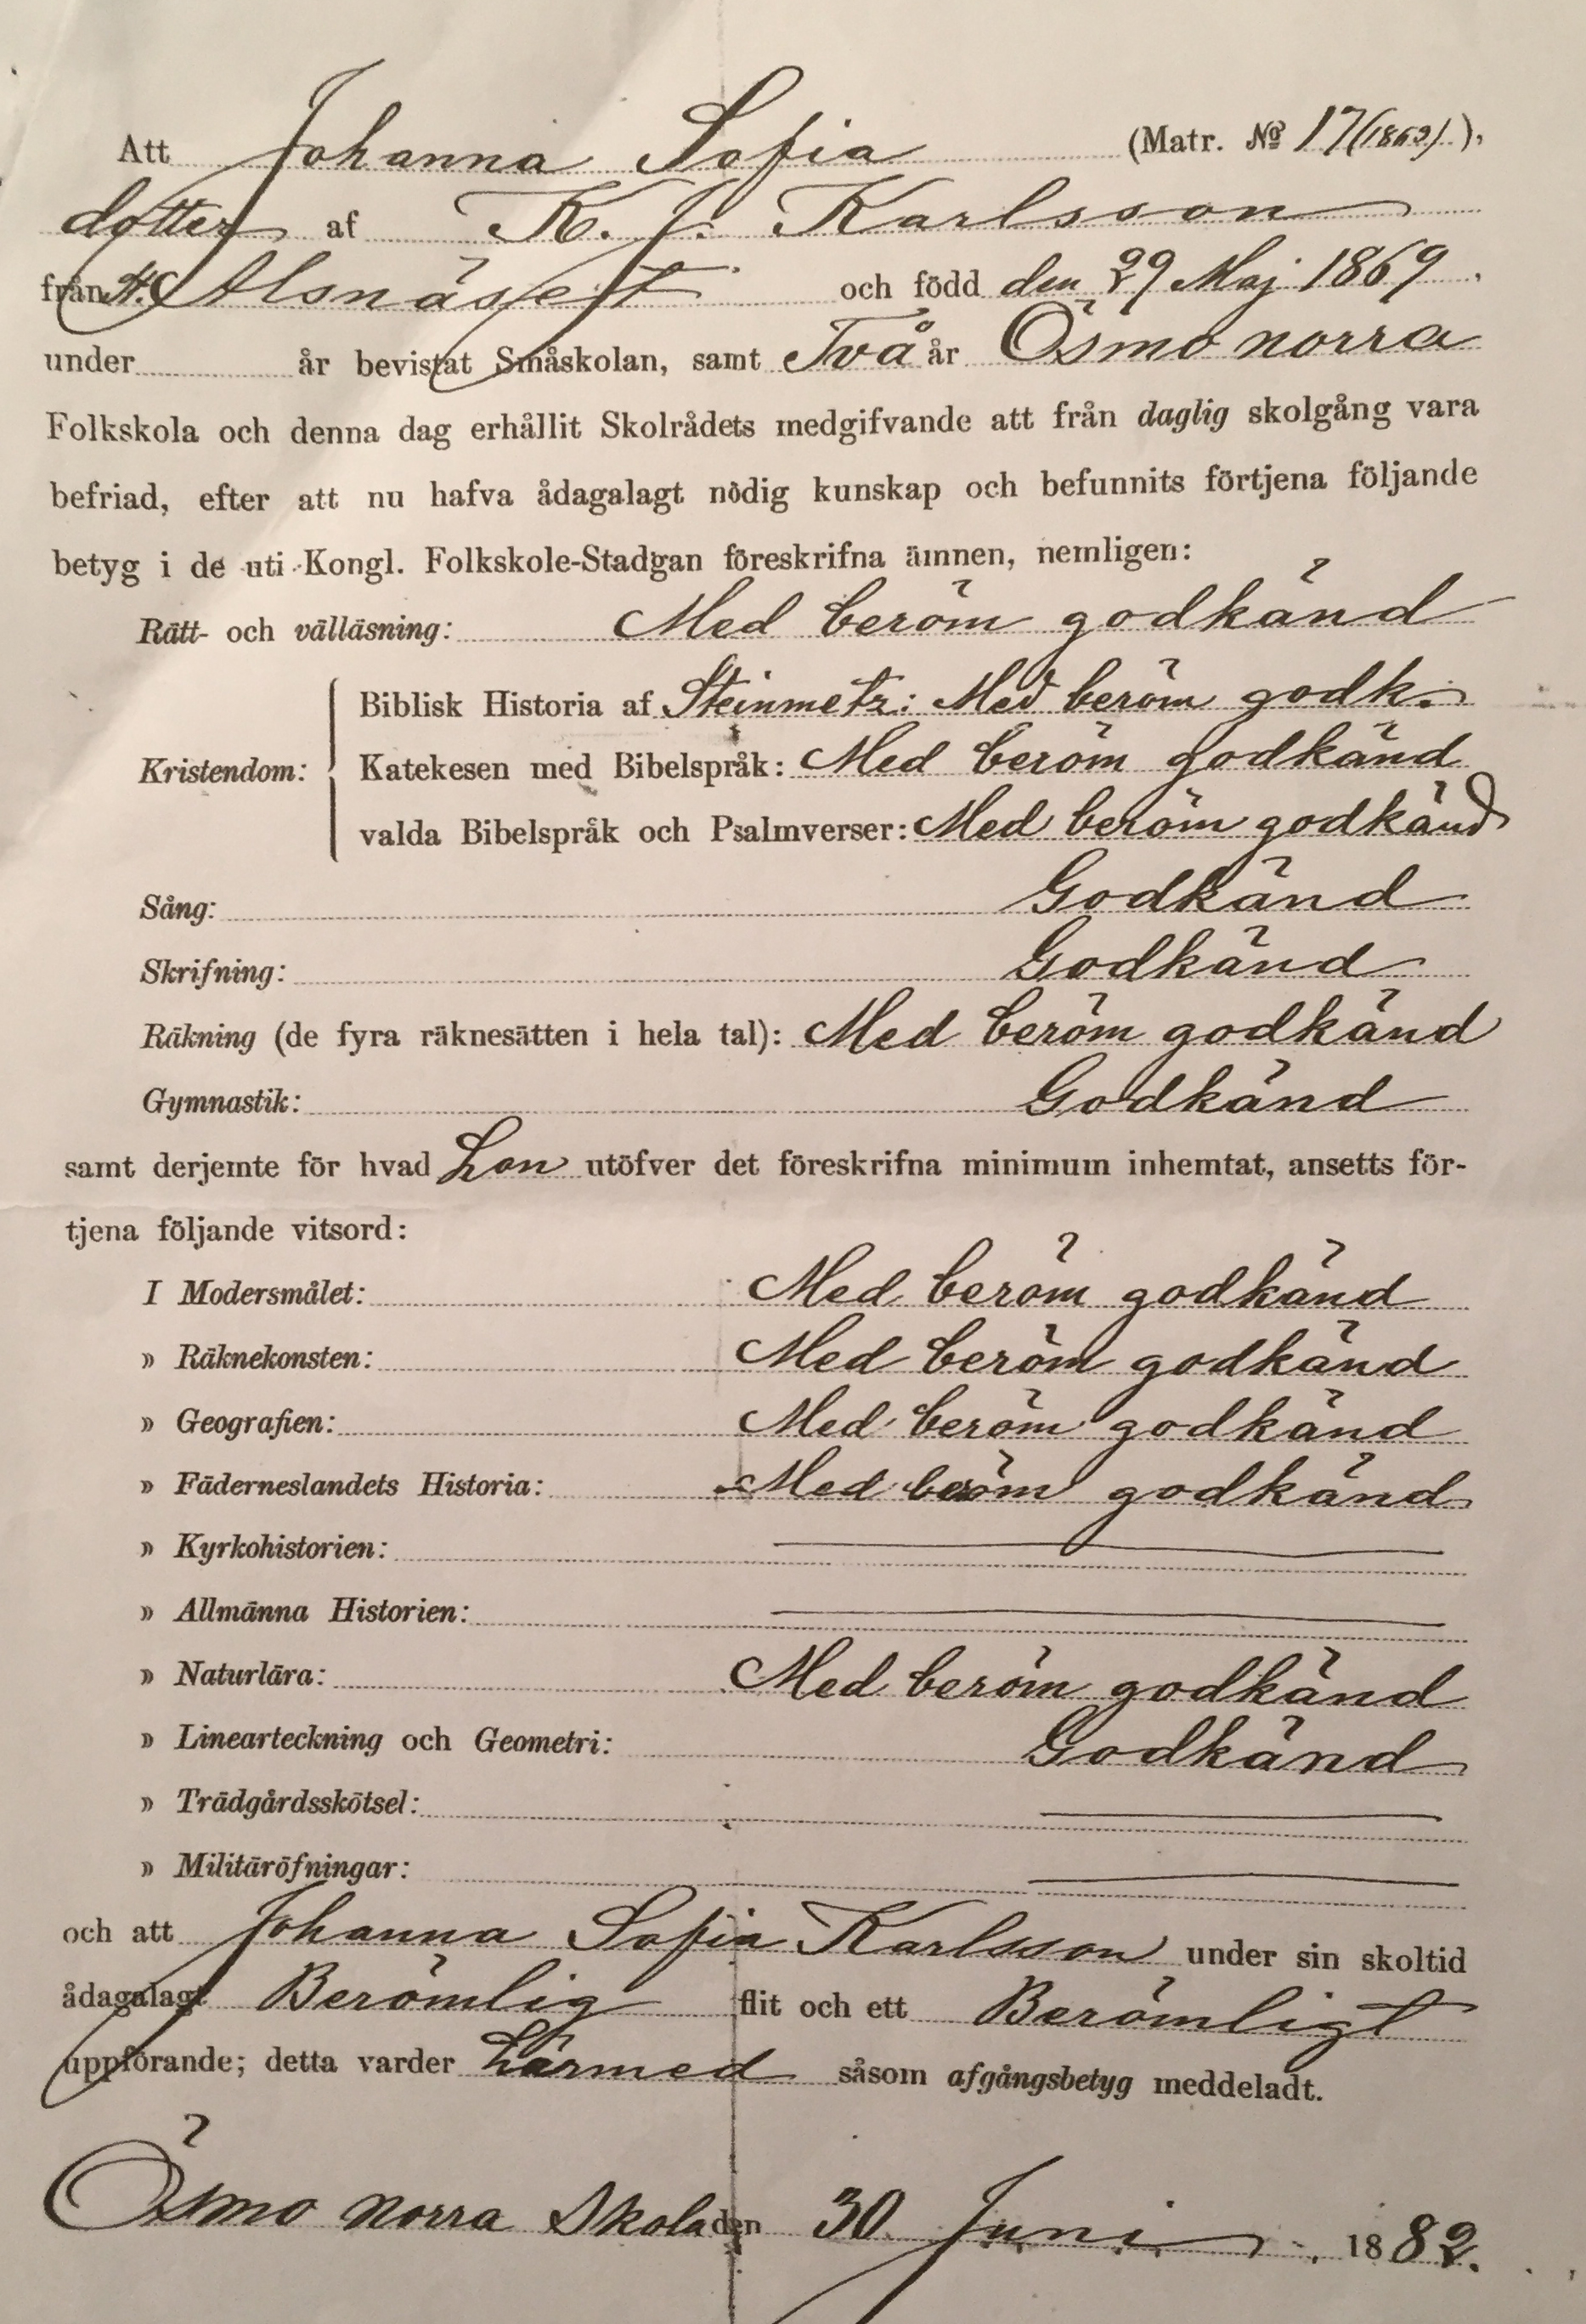 Att Johanna Sofia (Matr. No 17 (1869).),
dotter af K. J. Karlsson
från Alsnäset och född den 29 Maj 1869.
under år bevistat Småskolan, samt Två år Ösmo norra
Folkskola och denna dag erhållit Skolrådets medgifvande att från daglig skolgång vara
befriad, efter att nu hafva ådagalagt nödig kunskap och befunnits förtjena följande
betyg i de uti Kongl. Folkskole-Stadgan föreskrifna ämnen, nemligen:
Rätt- och välläsning: Med beröm godkänd
Biblisk Historia af Steinmetz: Med beröm godk.
Kristendom: Katekesen med Bibelspråk: Med beröm godkänd
valda Bibelspråk och Psalmverser: Med beröm godkänd
Sång: Godkänd
Skrifning: Godkänd
Räkning (de fyra räknesätten i hela tal): Med beröm godkänd
Gymnastik: Godkänd
samt derjemte för hvad hon utöfver det föreskrifna minimum inhemtat, ansetts för-
tjena följande vitsord:
I Modersmålet: Med beröm godkänd
» Räknekonsten: Med beröm godkänd
» Geografien: Med beröm godkänd
» Fäderneslandets Historia: Med beröm godkänd
» Kyrkohistorien:
» Allmänna Historien:
» Naturlära: Med beröm godkänd
» Linearteckning och Geometri: Godkänd
» Trädgårdsskötsel:
» Militäröfningar:
och att Johanna Sofia Karlsson under sin skoltid
ådagalagt Berömlig flit och ett Berömligt
uppförande; detta varder härmed såsom afgångsbetyg meddeladt.
Ösmo norra Skola den 30 Juni 1882.